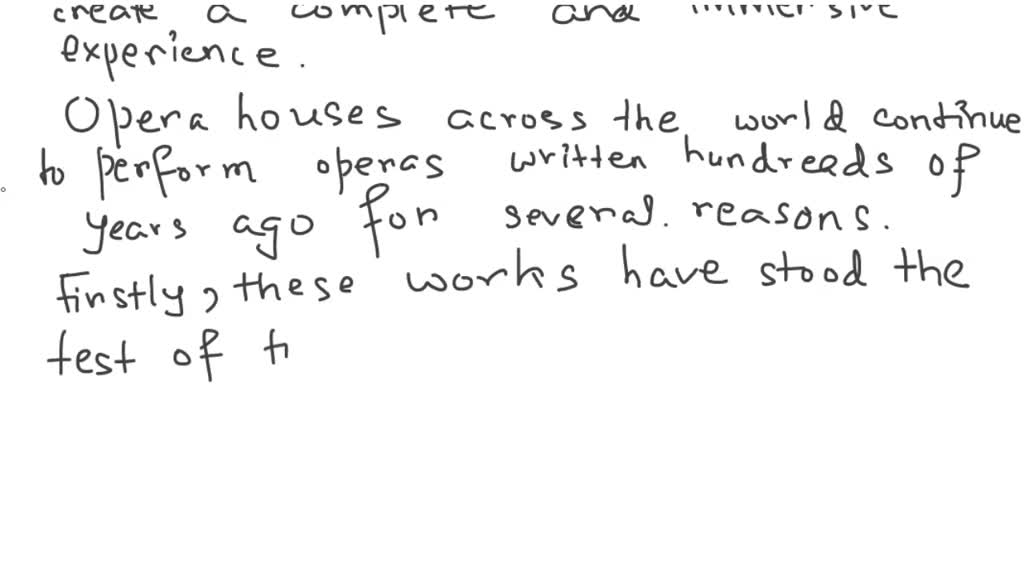 create a complete and immersive
experience.
Opera houses across the world continue
to perform operas written hundreads of
years ago for several. reasons.
Firstly, these works have stood the
test of t